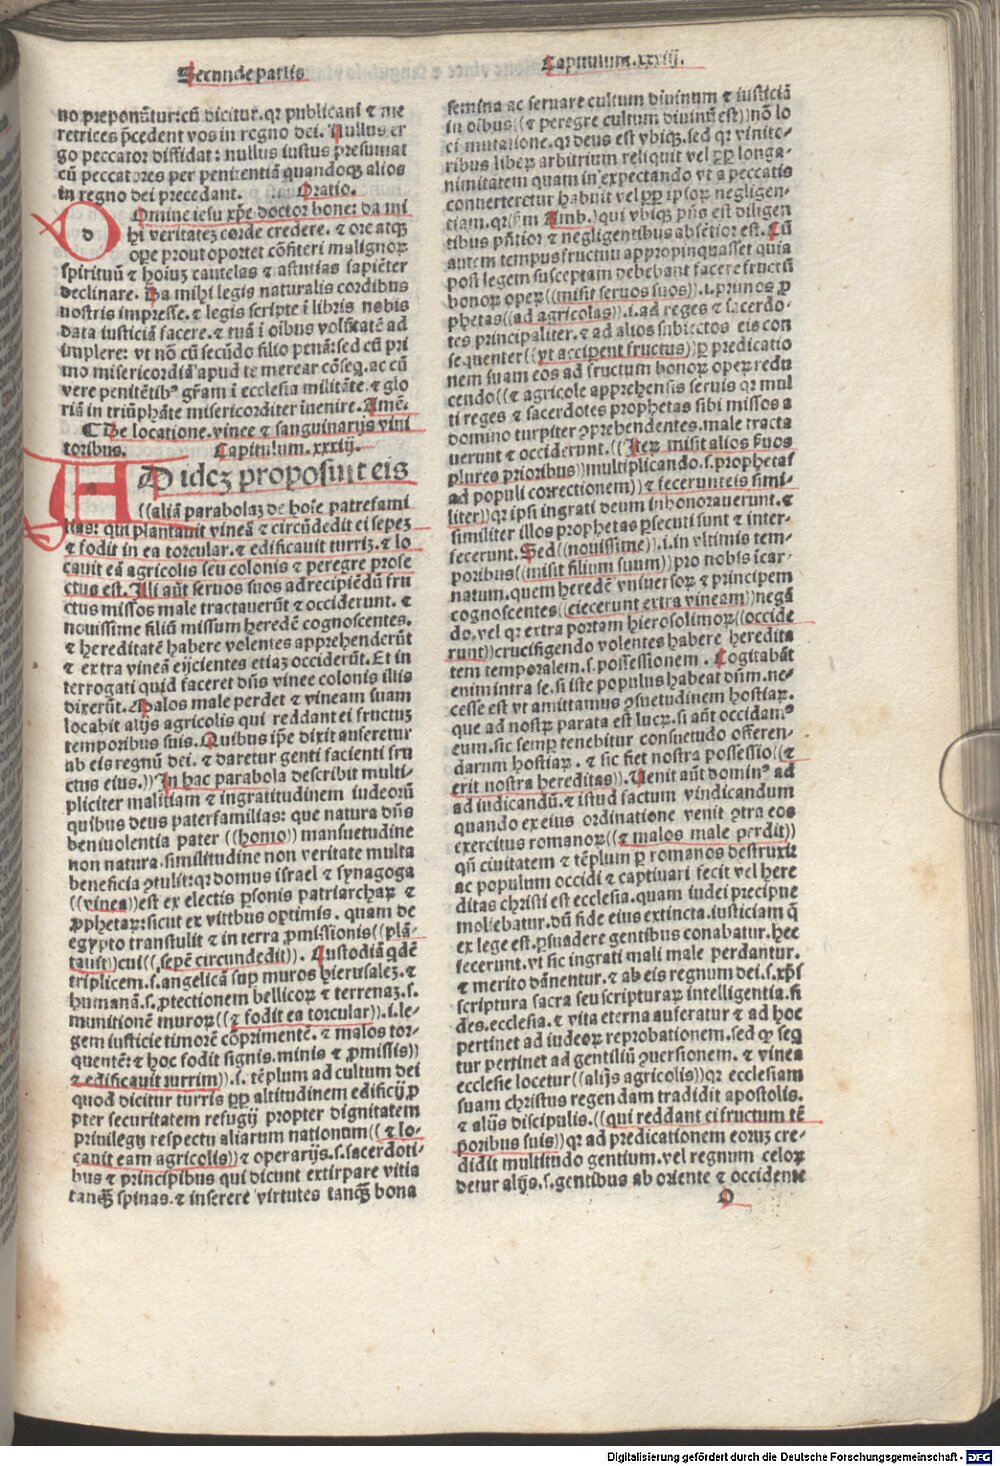 Secunde partis
Capitulum.xxxiij.
no preponūtur:cū dicitur.qꝛ publicani ⁊ me
retrices p̄cedent vos in regno dei. Nullus er
go peccator diffidat: nullus iustus presumat
cū peccatores per penitentiā quandoqꝫ alios
in regno dei precedant. Oratio.
Domine iesu xp̄e doctor bone: da mi
hi veritatez corde credere. ⁊ ore atqꝫ
ope prout oportet cōfiteri malignoꝝ
spirituū ⁊ hoiuꝫ cautelas ⁊ astutias sapiēter
declinare. Da mihi legis naturalis cordibus
nostris impresse.⁊ legis scripte i libris nobis
data iusticiā facere.⁊ tuā i oibus volūtatē ad
implere: vt nō cū secūdo filio penā:sed cū pri
mo misericordiā apud te merear cōseq.ac cū
vere penitētibꝰ grām i ecclesia militāte.⁊ glo
riā in triūphāte misericorditer inenire.Amē.
¶ De locatione.vinee ⁊ sanguinarijs vini
toribus. Capitulum.xxxiij.
ADidcꝫ proposuit eis
((aliā parabolaꝫ de hoie patrefami
lias: qui plantauit vineā ⁊ circūdedit ei sepeꝫ
⁊ fodit in ea torcular.⁊ edificauit turriꝫ.⁊ lo
cauit eā agricolis seu colonis ⁊ peregre profe
ctus est. Illi aūt seruos suos ad recipiēdū fru
ctus missos male tractauerūt ⁊ occiderunt. ⁊
nouissime filiū missum heredē cognoscentes.
⁊ hereditatē habere volentes apprehenderūt
⁊ extra vineā eijcientes etiaꝫ occiderūt.Et in
terrogati quid faceret dn̄s vinee colonis illis
dixerūt.Malos male perdet ⁊ vineam suam
locabit alijs agricolis qui reddant ei fructuꝫ
temporibus suis.Quibus ip̄e dixit auferetur
ab eis regnū dei. ⁊ daretur genti facienti fru
ctus eius.))In hac parabola describit multi-
pliciter malitiam ⁊ ingratitudinem iudeorū
quibus deus paterfamilias: que natura dn̄s
beniuolentia pater ((homo)) mansuetudine
non natura.similitudine non veritate multa
beneficia ꝯtulit:qꝛ domus israel ⁊ synagoga
((vinea))est ex electis ꝑsonis patriarchaꝝ ⁊
ꝓphetaꝝ:sicut ex vitibus optimis. quam de
egypto transtulit ⁊ in terra ꝓmissionis((plā-
tauit))cui((sepē circundedit)). Custodiā qdē
triplicem.s.angelicā suꝑ muros hierusaleꝫ.⁊
humanā.s.ꝓtectionem bellicoꝝ ⁊ terrenaꝫ.s.
munitionē muroꝝ((⁊ fodit ea torcular)).i.le-
gem iusticie timorē cōprimentē. ⁊ malos tor-
quentē:⁊ hoc fodit signis.minis ⁊ ꝓmissis))
⁊ edificauit turrim)).s. tēplum ad cultum dei
quod dicitur turris ꝓp̄ altitudinem edificij.ꝓ
pter securitatem refugij propter dignitatem
priuilegij respectu aliarum nationum((⁊ lo-
cauit eam agricolis))⁊ operarijs.s.sacerdoti-
bus ⁊ principibus qui dicunt extirpare vitia
tanqꝫ spinas.⁊ inserere virtutes tanqꝫ bona
semina ac seruare cultum diuinum ⁊ iusticiā
in oibus((⁊ peregre cultum diuinū est))nō lo
ci mutatione.qꝛ deus est vbiqꝫ.sed qꝛ vinito-
ribus liberꝝ arbitrium reliquit vel ꝓp̄ longa-
nimitatem quam in expectando vt a peccatis
conuerteretur habuit vel ꝓp̄ ipsoꝝ negligen-
tiam.qꝛ(ẜm Amb.)qui vbiqꝫ p̄ns est diligen
tibus pn̄tior ⁊ negligentibus absētior est. Cū
autem tempus fructuū appropinquasset quia
post legem susceptam debebant facere fructū
bonoꝝ operꝝ((misit seruos suos)).i.primos ꝓ
phetas((ad agricolas)).i.ad reges ⁊ sacerdo-
tes principaliter.⁊ ad alios subiectos eis con
sequenter((vt acciperent fructus))ꝑ predicatio
nem suam eos ad fructum bonoꝝ operꝝ redu
cendo((⁊ agricole apprehensis seruis qꝛ mul
ti reges ⁊ sacerdotes prophetas sibi missos a
domino turpiter ꝯprehendentes.male tracta
uerunt ⁊ occiderunt.((Iteꝝ misit alios ẜuos
plures prioribus))multiplicando.s.prophetas
ad populi correctionem))⁊ fecerunt eis simi-
liter))qꝛ ipsi ingrati deum inhonorauerunt.⁊
similiter illos prophetas ꝑsecuti sunt ⁊ inter-
fecerunt.Sed((nouissime)).i.in vltimis tem-
poribus((misit filium suum))pro nobis īcar-
natum.quem heredē vniuersoꝝ ⁊ principem
cognoscentes((eiecerunt extra vineam))negā
do.vel qꝛ extra portam hierosolimoꝝ((occide
runt))crucifigendo volentes habere heredita
tem temporalem.s.possessionem. Cogitabāt
enim intra se.si iste populus habeat dn̄m.ne-
cesse est vt amittamus ꝯsuetudinem hostiaꝝ.
que ad nostrꝝ parata est lucꝝ.si aūt occidamꝰ
eum.sic semꝑ tenebitur consuetudo offeren-
darum hostiaꝝ. ⁊ sic fiet nostra possessio((⁊
erit nostra hereditas)).Uenit aūt dominꝰ ad
ad iudicandū.⁊ istud factum vindicandum
quando ex eius ordinatione venit ꝯtra eos
exercitus romanoꝝ((⁊ malos male perdit))
qn̄ ciuitatem ⁊ tēplum ꝑ romanos destruxit
ac populum occidi ⁊ captiuari fecit vel here
ditas christi est ecclesia.quam iudei precipue
moliebatur.dū fide eius extincta.iusticiam q̄
ex lege est.ꝑsuadere gentibus conabatur.hec
fecerunt.vt sic ingrati mali male perdantur.
⁊ merito dānentur.⁊ ab eis regnum dei.s.xp̄i
scriptura sacra seu scripturaꝝ intelligentia.fi
des.ecclesia.⁊ vita eterna auferatur ⁊ ad hoc
pertinet ad iudeoꝝ reprobationem.sed qꝫ seq̄
tur pertinet ad gentiliū ꝯuersionem. ⁊ vinea
ecclesie locetur((alijs agricolis))qꝛ ecclesiam
suam christus regendam tradidit apostolis.
⁊ alijs discipulis.((qui reddant ei fructum tē
poribus suis))qꝛ ad predicationem eoruꝫ cre-
didit multitudo gentium.vel regnum celoꝝ
detur alijs.s.gentibus ab oriente ⁊ occidente
D
Digitalisierung gefördert durch die Deutsche Forschungsgemeinschaft - DFG